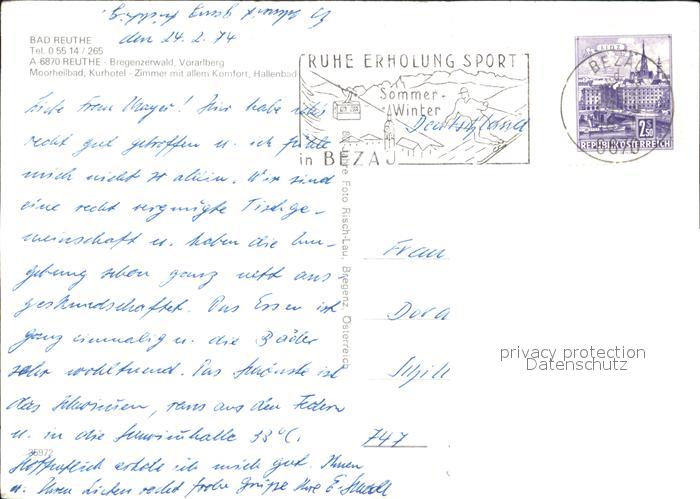 BAD REUTHE
Tel. 0 55 14 / 265
A-6870 REUTHE - Bregenzerwald, Vorarlberg
Moorheilbad, Kurhotel - Zimmer mit allem Komfort, Hallenbad
den 24. 2. 74
RUHE ERHOLUNG SPORT
Sommer-
Winter
in BEZAU
Deutschland
LINZ
BEZAU
6870
2S50
REPUBLIK ÖSTERREICH
Liebe Frau Mayer! Hier habe ich's
recht gut getroffen u. ich fühle
mich nicht so allein. Wir sind
eine recht vergnügte Tischge-
meinschaft u. haben die Um-
gebung schon ganz nett aus-
gekundschaftet. Das Essen ist
ganz einmalig u. die Bäder
sehr wohltuend. Das Schönste ist
das Schwimmen, raus aus den Federn
u. in die Schwimmhalle 33°C.
Hoffentlich erhole ich mich gut. Ihnen
u. Ihren Lieben recht frohe Grüße Ihre E.
35972
Foto Risch-Lau, Bregenz, Österreich
Frau
Dora
Schill
747
privacy protection
Datenschutz